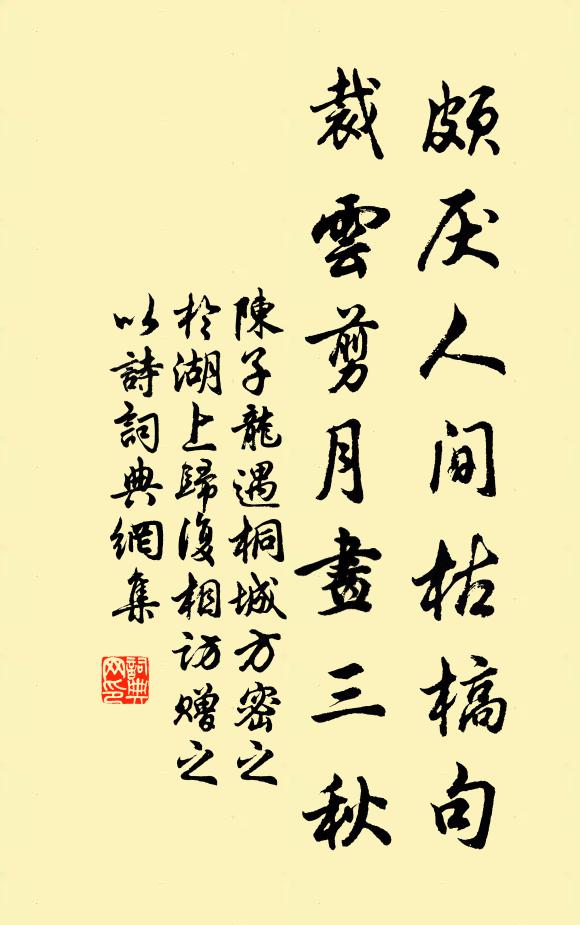 頗厌人间枯槁句
裁雲剪月畫三秋
陳子龍遇桐城方密之
於湖上歸復相訪贈之
以詩詞典網集
詞典网印